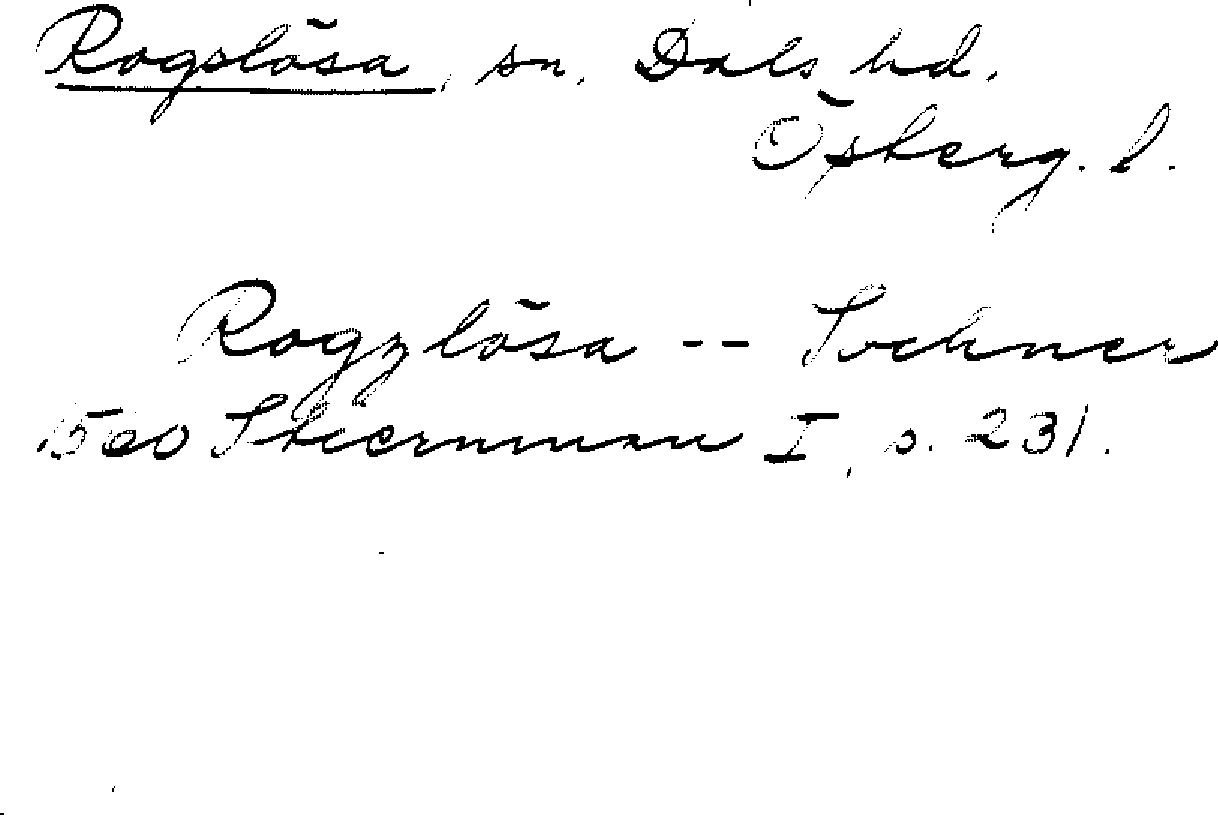 Rogslösa, sn. Dals hd.
Österg. l.
Rogzlösa -- Sochner
1560 Stiernman I, s. 231.